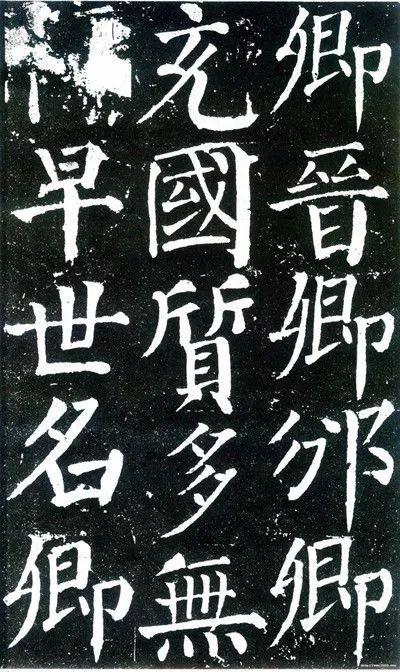 卿晋卿邠卿
充國質多無
早世名卿